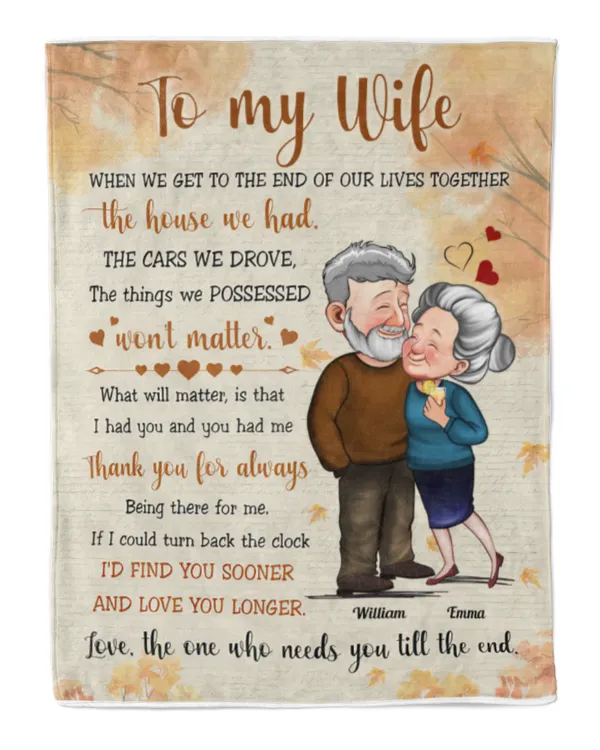 To my Wife
WHEN WE GET TO THE END OF OUR LIVES TOGETHER
the house we had.
THE CARS WE DROVE,
The things we POSSESSED
won't matter.
What will matter, is that
I had you and you had me
Thank you for always
Being there for me.
If I could turn back the clock
I'D FIND YOU SOONER
AND LOVE YOU LONGER.
William Emma
Love, the one who needs you till the end.